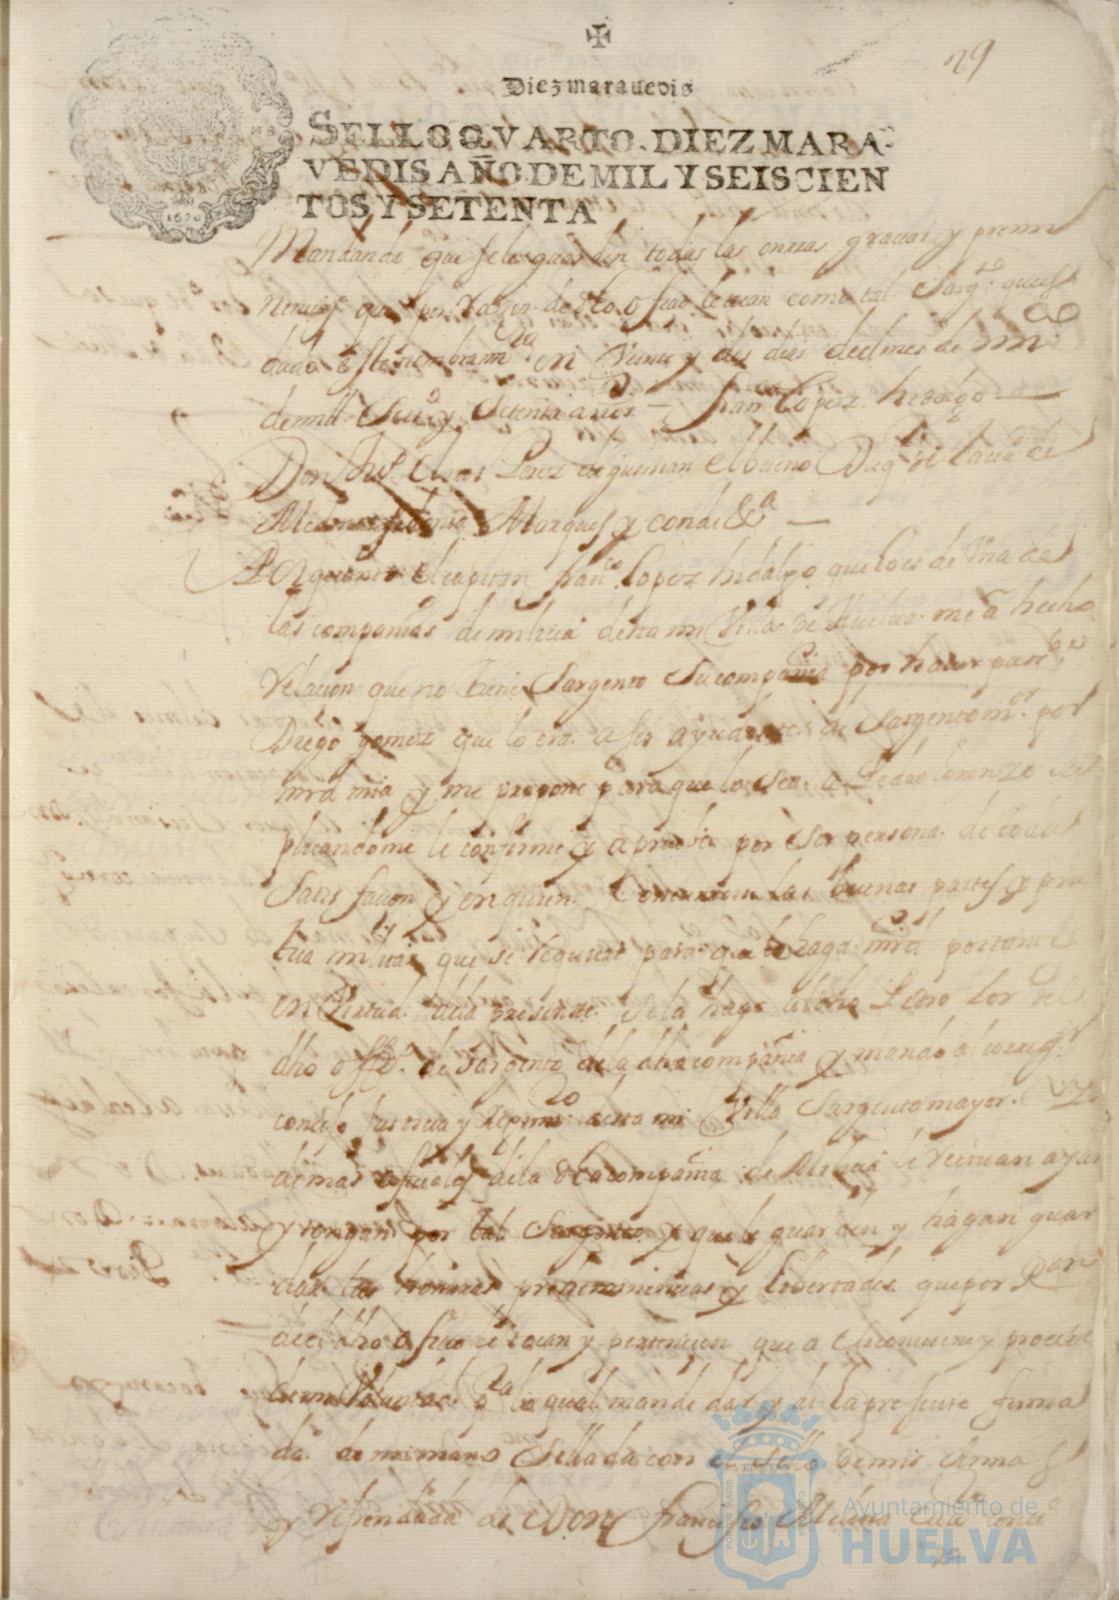 29
Diez maravedis
SELLO QVARTO, DIEZ MARA-
VEDIS AÑO DE MIL Y SEISCIEN
TOS Y SETENTA
1670
Mandando que se le guarden todas las onrras gracias y premi
nencias que por Razon de dho ofiçio le tocan como tal Sargto
dado este nombramto en Veinte y dos dias del mes de
de mill Seisos y Setenta años — franco Lopez hidalgo
Don Juo Claros Perez de guzman el bueno Duq de la ciudad de
Medina sidonia Marques y conde &a —
Por quanto el capitan franco Lopez hidalgo que lo es de Vna de
las companias de miliçia desta mi Villa de Huelua me a hecho
relacion que no tiene Sargento Su compañia por hauer
Diego gomez que lo era a ser ayudante de Sargento mor por
mrd mia y me propone para que lo sea a Pedro lorenzo
plicandome le confirme y aprueba por ser persona de toda
satisfacion y en quien Concurren las buenas partes y pra
tica militar que se requiere para que le haga mrd por tanto
en Virtud dela presente se la hago al dho Pedro Lor del
dho offo de sargento de la dha compañia y mando al corregr
concejo justicia y Regimto desta mi Villa Sargento mayor
demas ofiçiales dela dha compañia de Milicia le reciuan ayan
y tengan por tal Sargento y que le guarden y hagan guar
dar las honrras preheminencias y libertades que por Raçon
de el dho ofiçio le tocan y pertenecen que a
mi Voluntad pa lo qual mande dar y di la presente firma
da de mi mano Sellada con el sello de mis Armas
y refrendada de Don francisco
Ayuntamiento de
HUELVA